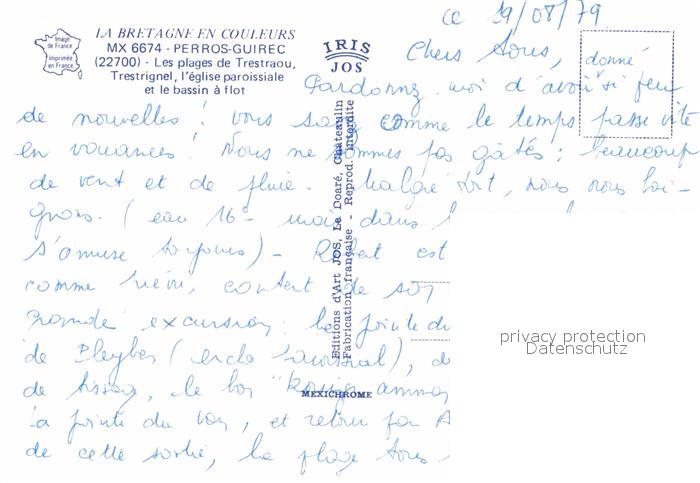 ce 19/08/79
LA BRETAGNE EN COULEURS
MX 6674 - PERROS-GUIREC
(22700) - Les plages de Trestraou,
Trestrignel, l'église paroissiale
et le bassin à flot
Image de France
Imprimée en France
IRIS
JOS
Chers tous,
Pardonnez moi d'avoir donné si peu
de nouvelles! vous savez comme le temps passe vite
en vacances! Nous ne sommes pas gâtés; beaucoup
de vent et de pluie. Malgré tout, nous nous bai-
gnons. (eau 16° mais dans
s'amuse toujours) - Robert est
comme content de son
grande excursion: la pointe du
de Pleyben (enclos paroissial),
de le bon
la pointe du et retour par
de cette sortie, la plage tous
Editions d'Art JOS, Le Doaré, Châteaulin
Fabrication française - Reprod. Interdite
MEXICHROME
privacy protection
Datenschutz